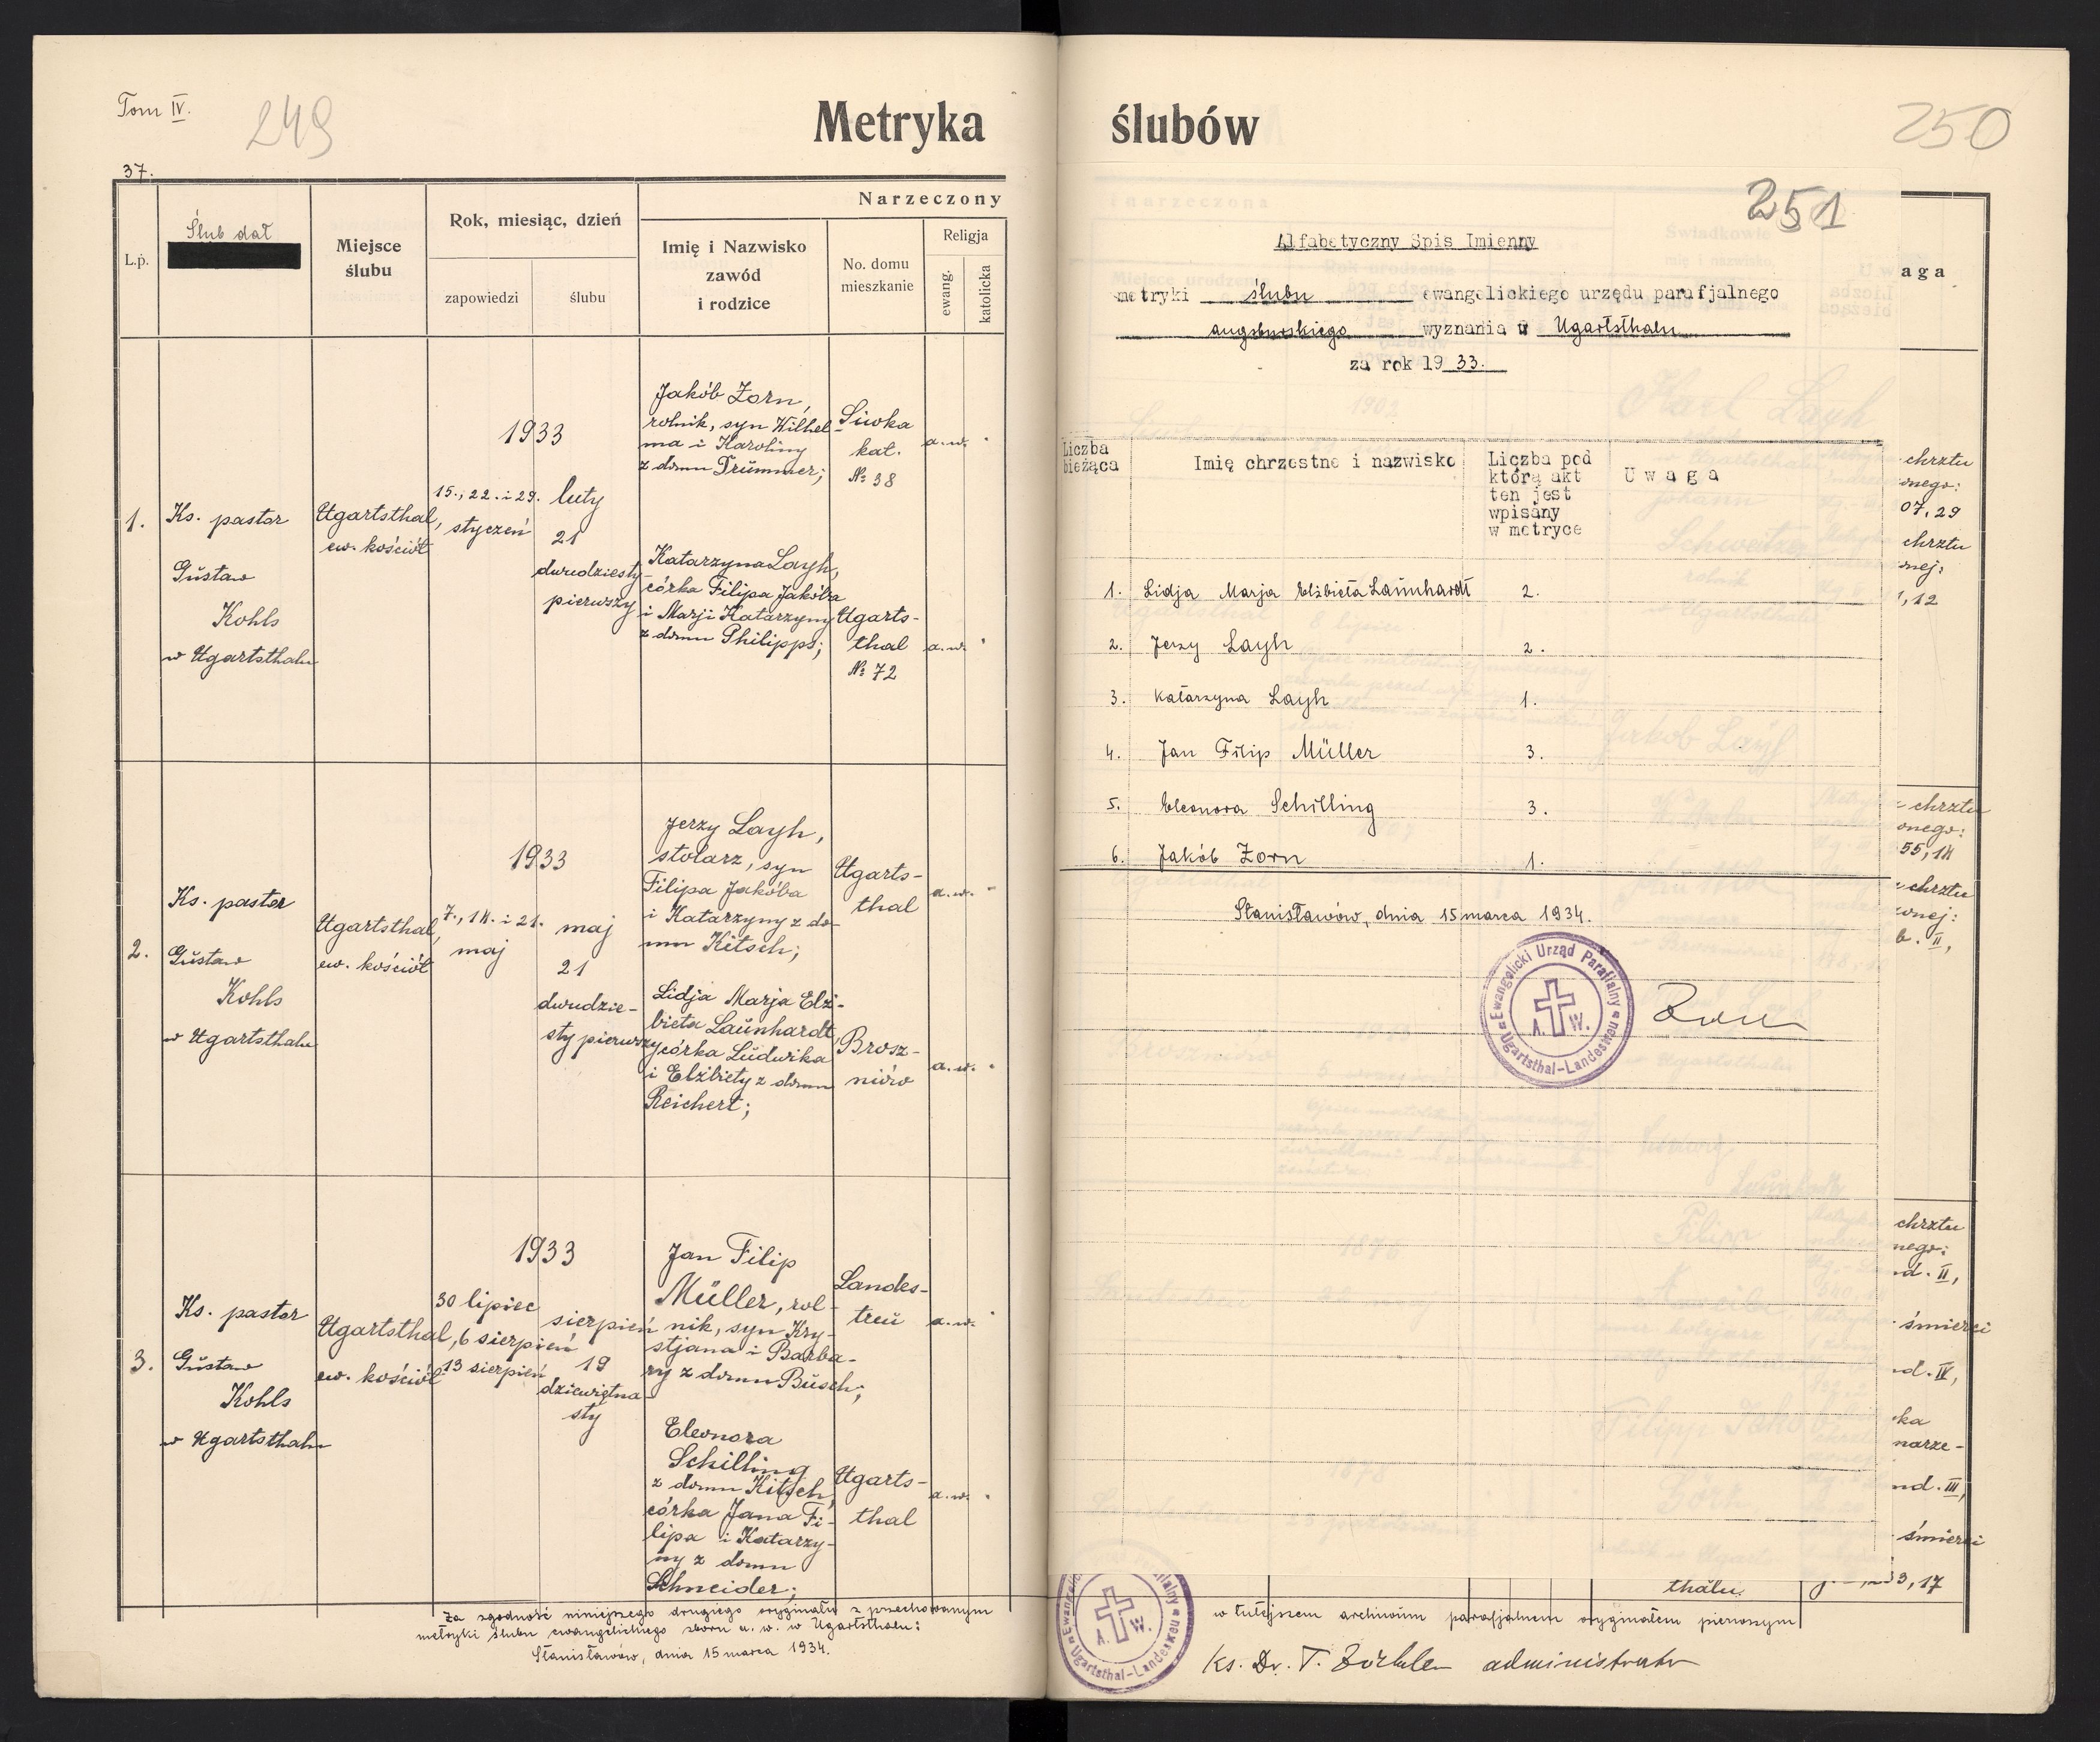 Tom IV.
249
Metryka ślubów
250
37.
L.p.
Ślub dał
Miejsce
ślubu
Rok, miesiąc, dzień
zapowiedzi
ślubu
Narzeczony
Imię i Nazwisko
zawód
i rodzice
No. domu
mieszkanie
Religja
ewang.
katolicka
1.
Ks. pastor
Gustaw
Kohls
w Ugartsthalu
Ugartsthal,
ew. kościół
1933
15., 22. i 29.
styczeń
luty
21
dwudziesty
pierwszy
Jakób Zorn,
rolnik, syn Wilhel-
ma i Karoliny
z domu Drummer;
Siwka
kat.
№ 38
a.w.
Katarzyna Layh,
córka Filipa Jakóba
i Marji Katarzyny
z domu Philipps;
Ugarts-
thal
№ 72
a.w.
2.
Ks. pastor
Gustaw
Kohls
w Ugartsthalu
Ugartsthal,
ew. kościół
1933
7., 14. i 21.
maj
maj
21
dwudzie-
sty pierwszy
Jerzy Layh,
stolarz, syn
Filipa Jakóba
i Katarzyny z do-
mu Kitsch;
Ugarts-
thal
a.w.
Lidja Marja Elż-
bieta Launhardt,
córka Ludwika
i Elżbiety z domu
Reichert;
Brosz-
niów
a.w.
3.
Ks. pastor
Gustaw
Kohls
w Ugartsthalu
Ugartsthal,
ew. kościół
1933
30 lipiec
6 sierpień
13 sierpień
sierpień
19
dziewiętna-
sty
Jan Filip
Müller, rol-
nik, syn Kry-
stjana i Barba-
ry z domu Busch;
Landes-
treu
a.w.
Eleonora
Schilling
z domu Kitsch,
córka Jana Fi-
lipa i Katarzy-
ny z domu
Schneider;
Ugarts-
thal
a.w.
Za zgodność niniejszego drugiego oryginału z przechowanym
metryki ślubu ewangelickiego zboru a. w. w Ugartsthalu:
Stanisławów, dnia 15 marca 1934.
251
Alfabetyczny Spis Imienny
metryki ślubu ewangelickiego urzędu parafjalnego
augsburskiego wyznania w Ugartsthalu
za rok 19 33.
Liczba
bieżąca
Imię chrzestne i nazwisko
Liczba pod
którą akt
ten jest
wpisany
w metryce
Uwaga
1. Lidja Marja Elżbieta Launhardt 2.
2. Jerzy Layh 2.
3. Katarzyna Layh 1.
4. Jan Filip Müller 3.
5. Eleonora Schilling 3.
6. Jakób Zorn 1.
Stanisławów, dnia 15 marca 1934.
Ewangelicki Urząd Parafialny
A. W.
Ugartsthal-Landestreu
aga
chrztu
onego:
07, 29
chrztu
nej:
1, 12
chrztu
onego:
55, 14
chrztu
b. II,
chrztu
nego:
d. II,
śmierci
d. IV,
ka
narze-
nd. III,
śmierci
3, 17
thalu.
w tutejszem archiwum parafjalnem oryginałem pierwszym
A. W.
Ugartsthal-Landestreu
Ks. Dr. T. Zöckler administrator